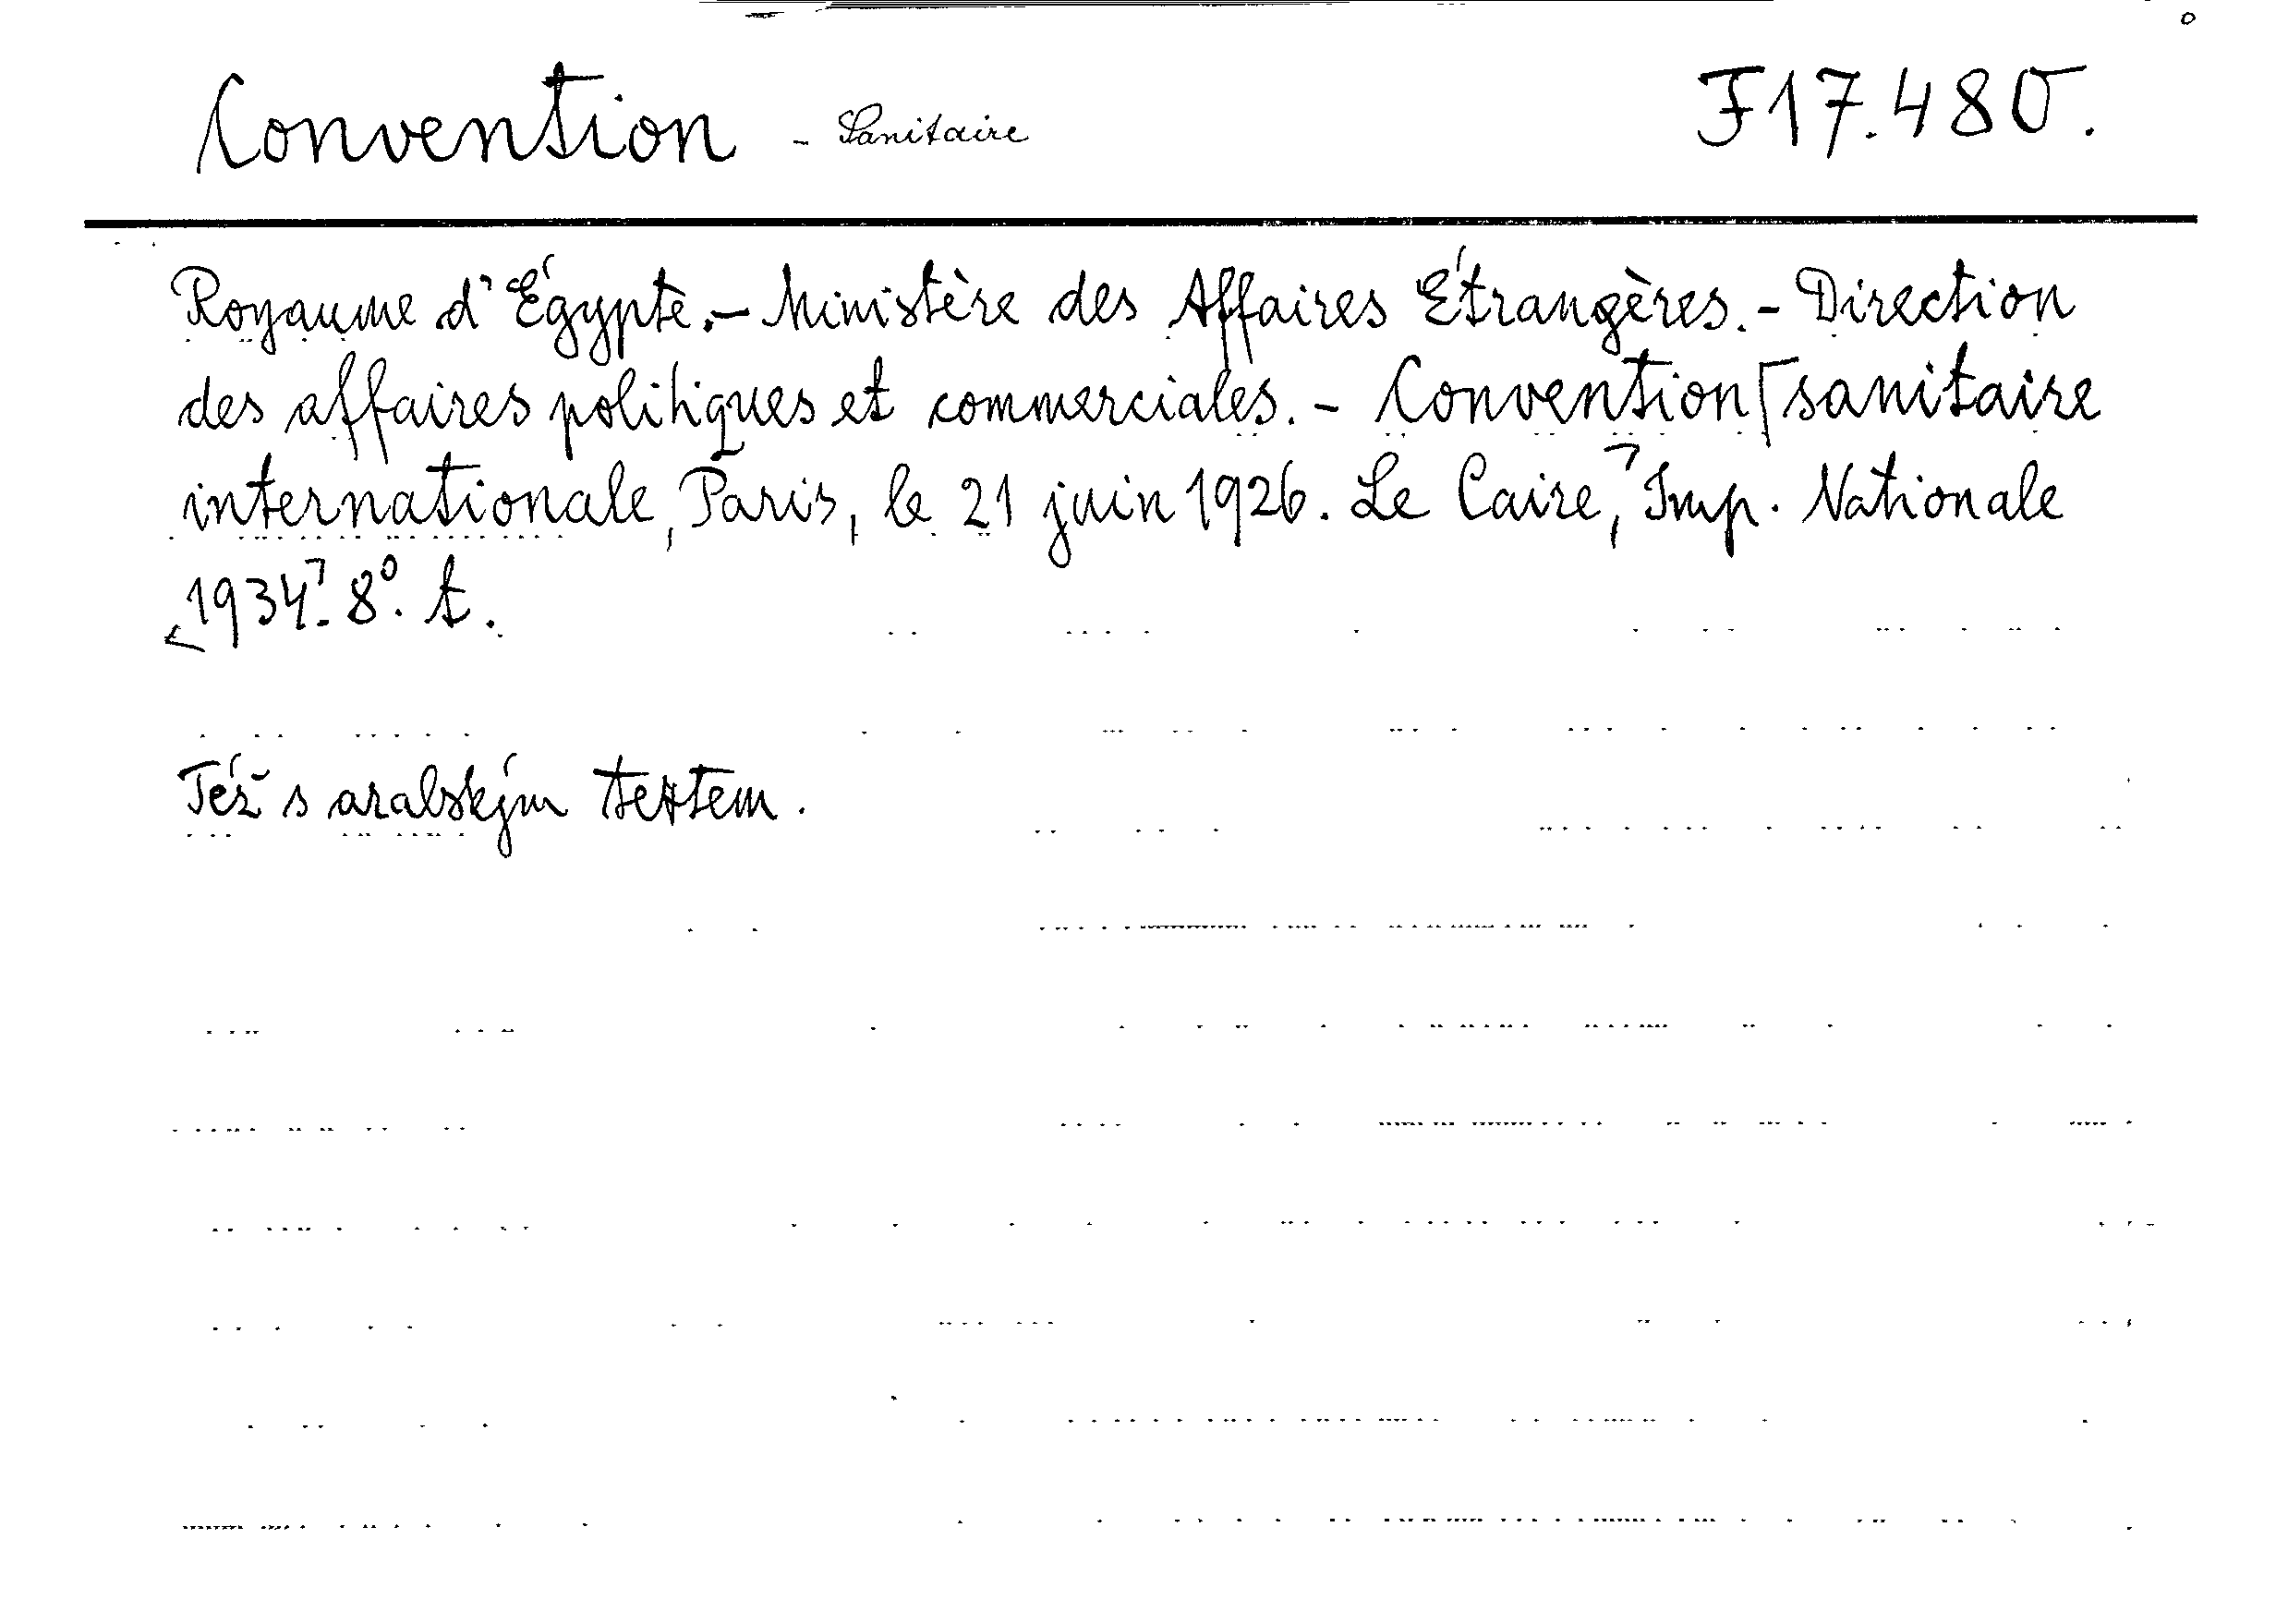 Convention - Sanitaire F 17.480.
Royaume d'Égypte. - Ministère des Affaires Étrangères. - Direction
des affaires politiques et commerciales. - Convention [sanitaire
internationale, Paris, le 21 juin 1926. Le Caire,⌉ Imp. Nationale
[1934⌉. 8°. t.
Též s arabským textem.